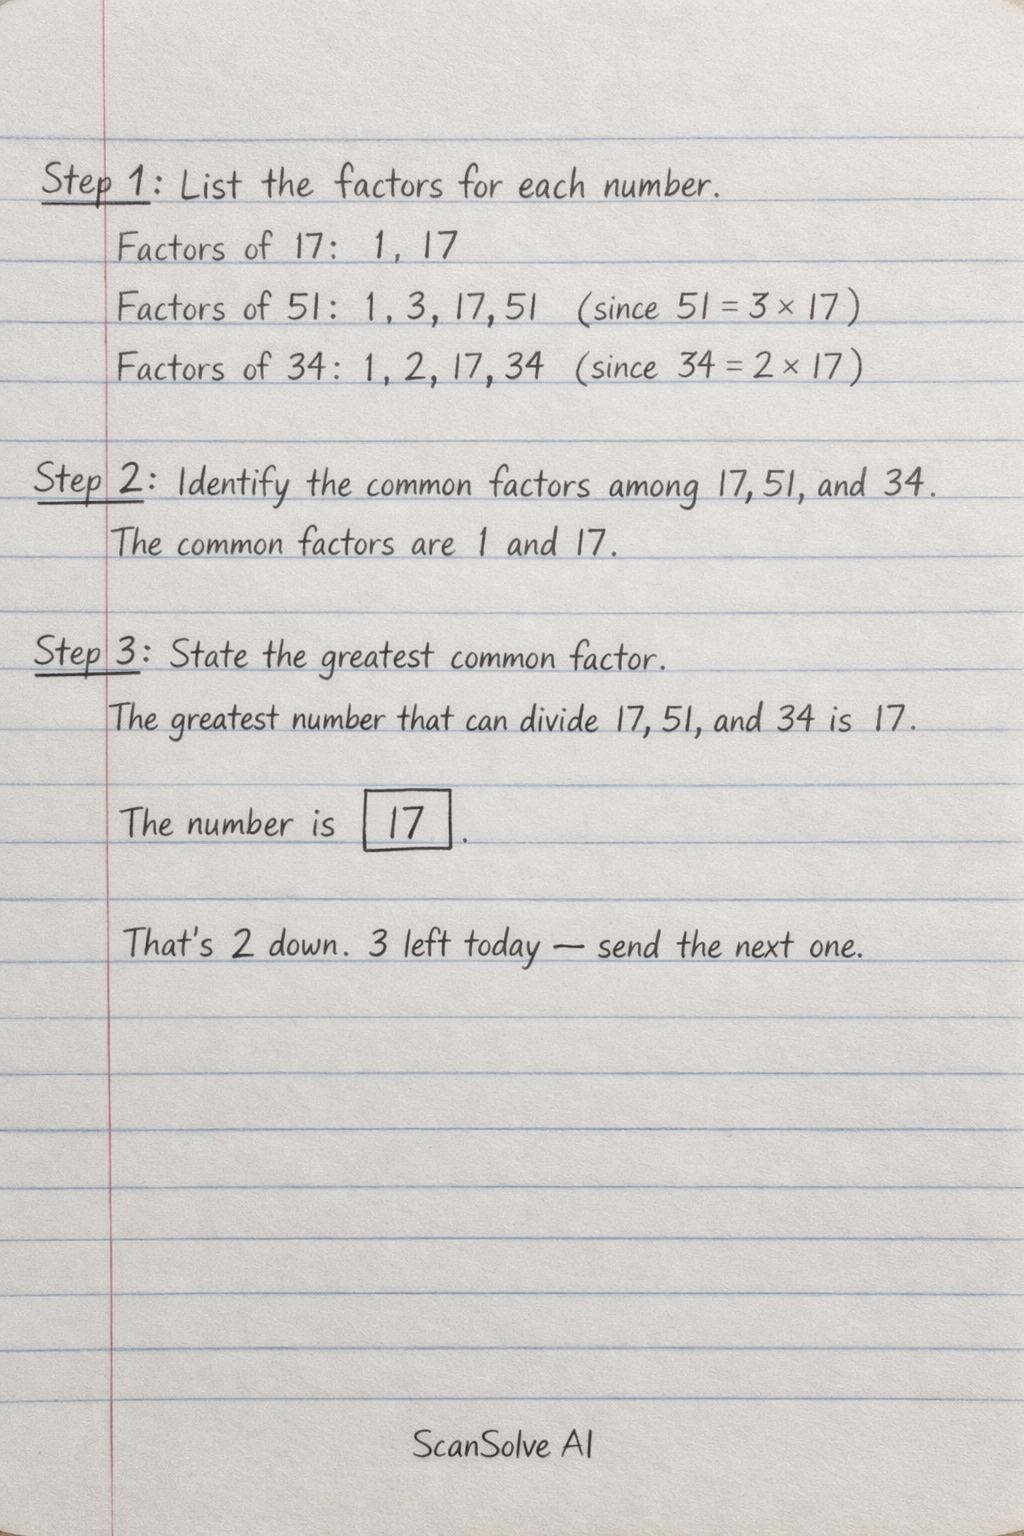 Step 1: List the factors for each number.
Factors of 17: 1, 17
Factors of 51: 1, 3, 17, 51 (since 51 = 3 × 17)
Factors of 34: 1, 2, 17, 34 (since 34 = 2 × 17)
Step 2: Identify the common factors among 17, 51, and 34.
The common factors are 1 and 17.
Step 3: State the greatest common factor.
The greatest number that can divide 17, 51, and 34 is 17.
The number is 17.
That's 2 down. 3 left today — send the next one.
ScanSolve AI